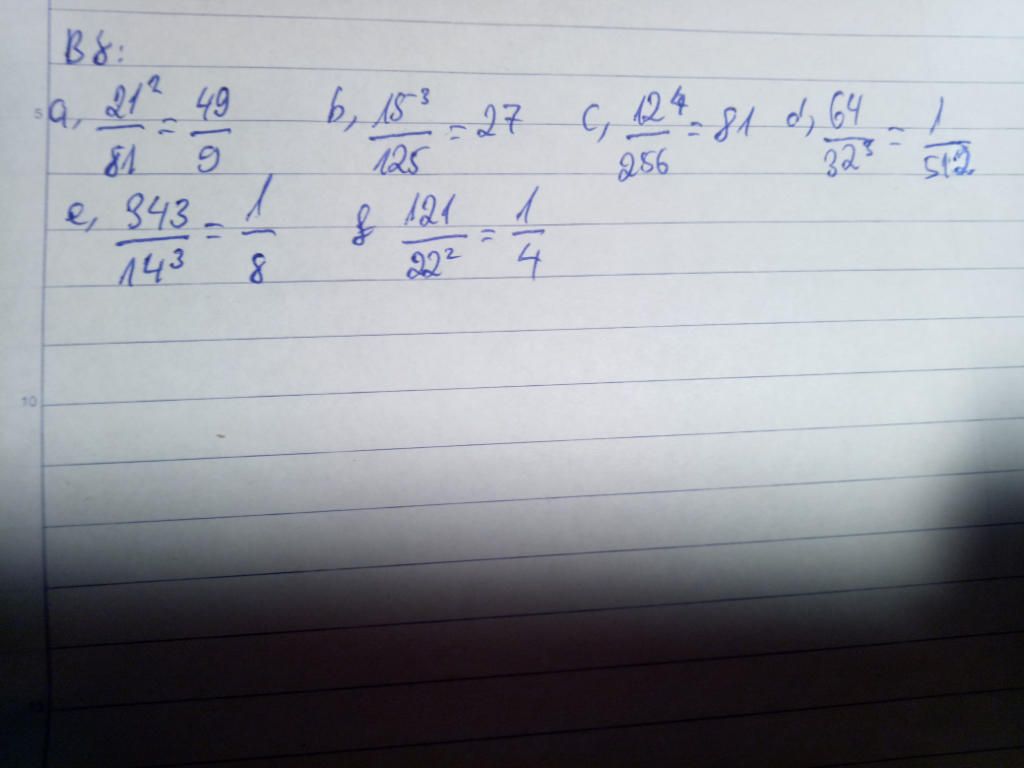 B8:
a, 21²/81 = 49/9 b, 15³/125 = 27 c, 12⁴/256 = 81 d, 64/32³ = 1/512
e, 343/14³ = 1/8 f 121/22² = 1/4
5
10